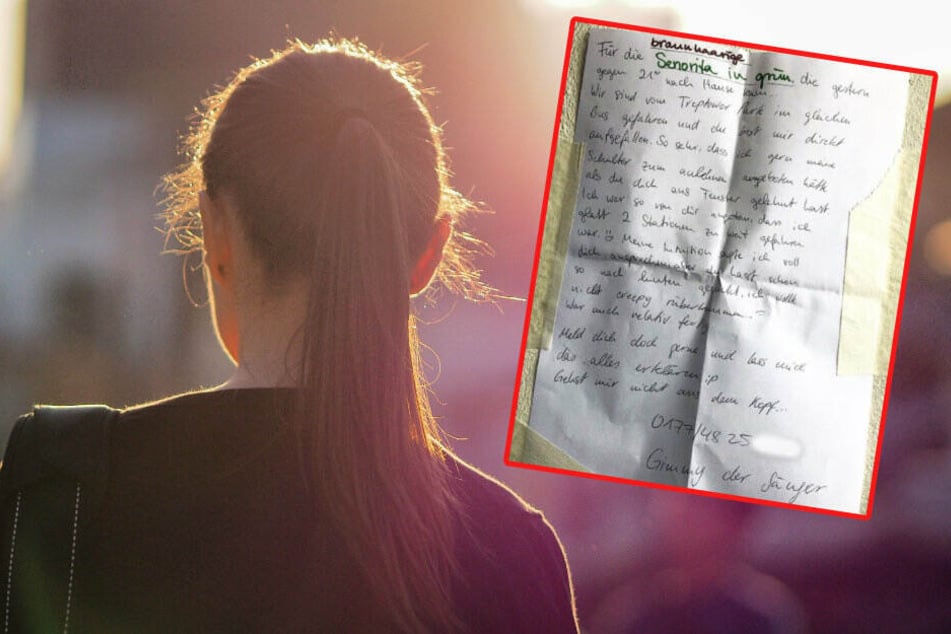 Für die braunhaarige
Senorita in grün, die gestern
gegen 21⁰⁰ nach Hause kam.
Wir sind vom Treptower Park im gleichen
Bus gefahren und du bist mir direkt
aufgefallen. So sehr, dass ich gern meine
Schulter zum anlehnen angeboten hätte
als du dich ans Fenster gelehnt hast
Ich war so von dir angetan, dass ich
glatt 2 Stationen zu weit gefahren
war. Meine Intuition ich voll
dich ansprechen aber du hast schon
so nach hinten ich wollte
nicht creepy rüberkommen.
War auch relativ
Meld dich doch gerne und lass mich
das alles erklären :P
Gehst mir nicht aus dem Kopf...
0177/48 25
Gimmy der Sänger